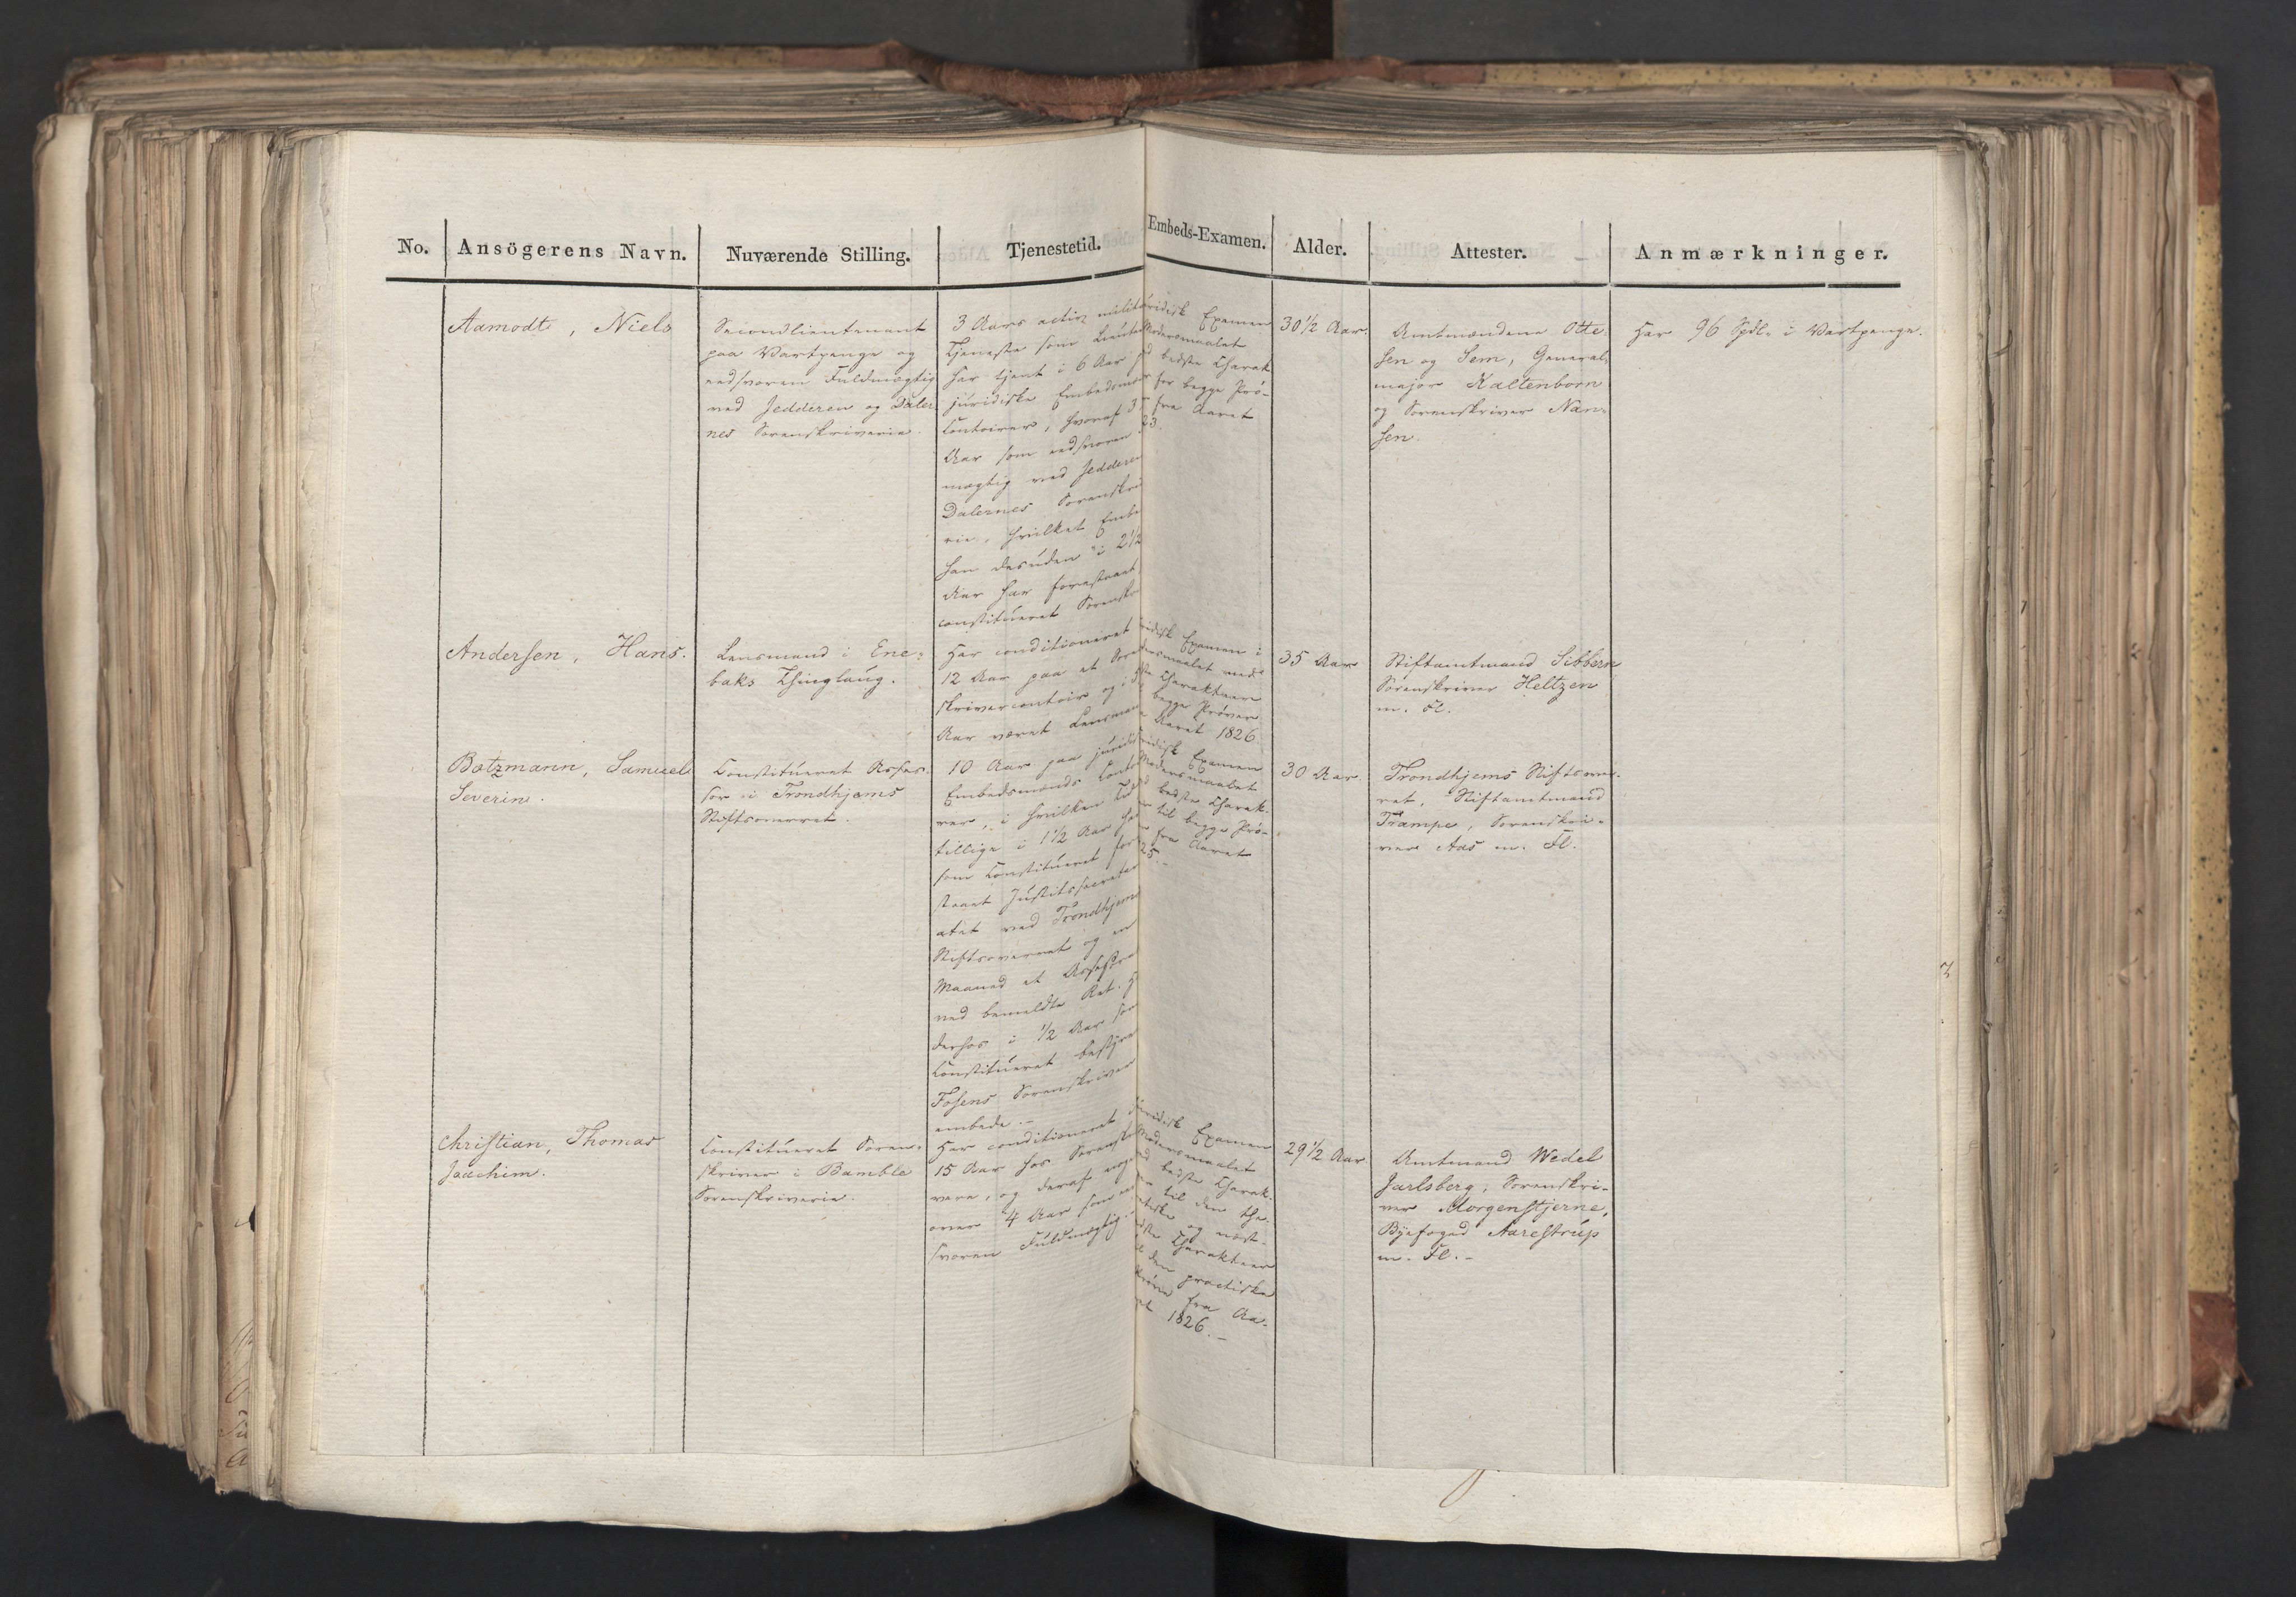 No. Ansögerens Navn. Nuværende Stilling. Tjenestetid. Embeds-Examen. Alder. Attester. Anmærkninger.
Aamodt, Niels
Secondlieutenant
paa Vartpenge og
eedsvoren Fuldmægtig
ved Jedderen og Daler
nes Sorenskriverie.
3 Aars activ milit
Tjeneste som Lieute
har tjent i 6 Aar p
juridiske Embedsmæ
Contoirer, hvoraf 3
Aar som eedsvoren
mægtig ved Jedderen
Dalernes Sorenskri
rie, hvilket Embe
han desuden i 2 1/2
Aar har forestaaet
constitueret Sorenskr
ridisk Examen
Modersmaalet
d bedste Charak
for begge Prö-
fra Aaret
23.
30 1/2 Aar.
Amtmændene Otte-
sen og Sem, General-
major Kaltenborn
og Sorenskriver Nan-
sen.
Har 96 Spdl. i Vartpenge.
Andersen, Hans.
Lensmand i Ene-
baks Thinglaug.
Har conditioneret
12 Aar paa et Soren
skrivercontoir og i
Aar været Lensman
ridisk Examen i
dersmaalet med
ste Charakteer
begge Pröver
Aaret 1826
35 Aar
Stiftamtmand Sibbern
Sorenskriver Heltzen
m. Fl.
Botzmann, Samuel
Severin.
Constitueret Asses-
sor i Trondhjems
Stiftsoverret.
10 Aar paa juridi
Embedsmænds Conto
rer, i hvilken Tid
tillige i 1 1/2 Aar ha
som Constitueret fore
staaet Justitssecretari
atet ved Trondhjems
Stiftsoverret og en
Maaned et Assessora
ved bemeldte Ret. H
derhos i 1/2 Aar som
Constitueret bestyre
Fosens Sorenskriver
embede.-
ridisk Examen
Modersmaalet
d bedste Charak-
til begge Prö-
fra Aaret
25.-
30 Aar.
Trondhjems Stiftsover-
ret, Stiftamtmand
Trampe, Sorenskri-
ver Aas m. Fl.
Christian, Thomas
Jochim.
Constitueret Soren-
skriver i Bamble
Sorenskriverie.
Har conditioneret
15 Aar hos Sorenskri
vere, og deraf noget
over 4 Aar som eed
svoren Fuldmægtig.-
juridisk Examen
Modersmaalet
d bedste Charak-
til den the-
retiske og næst-
dste Charakteer
l den practiske
Pröve fra Aa-
ret 1826.-
29 1/2 Aar
Amtmand Wedel
Jarlsberg, Sorenskri-
ver Morgenstjerne,
Byefoged Aarestrup
m. Fl.-